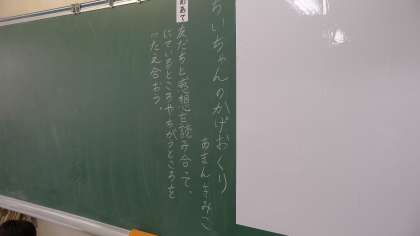 ちいちゃんのかげおくり
あまんきみこ
めあて
友だちと感想を読み合って、
にているところやちがうところを
つたえ合おう。